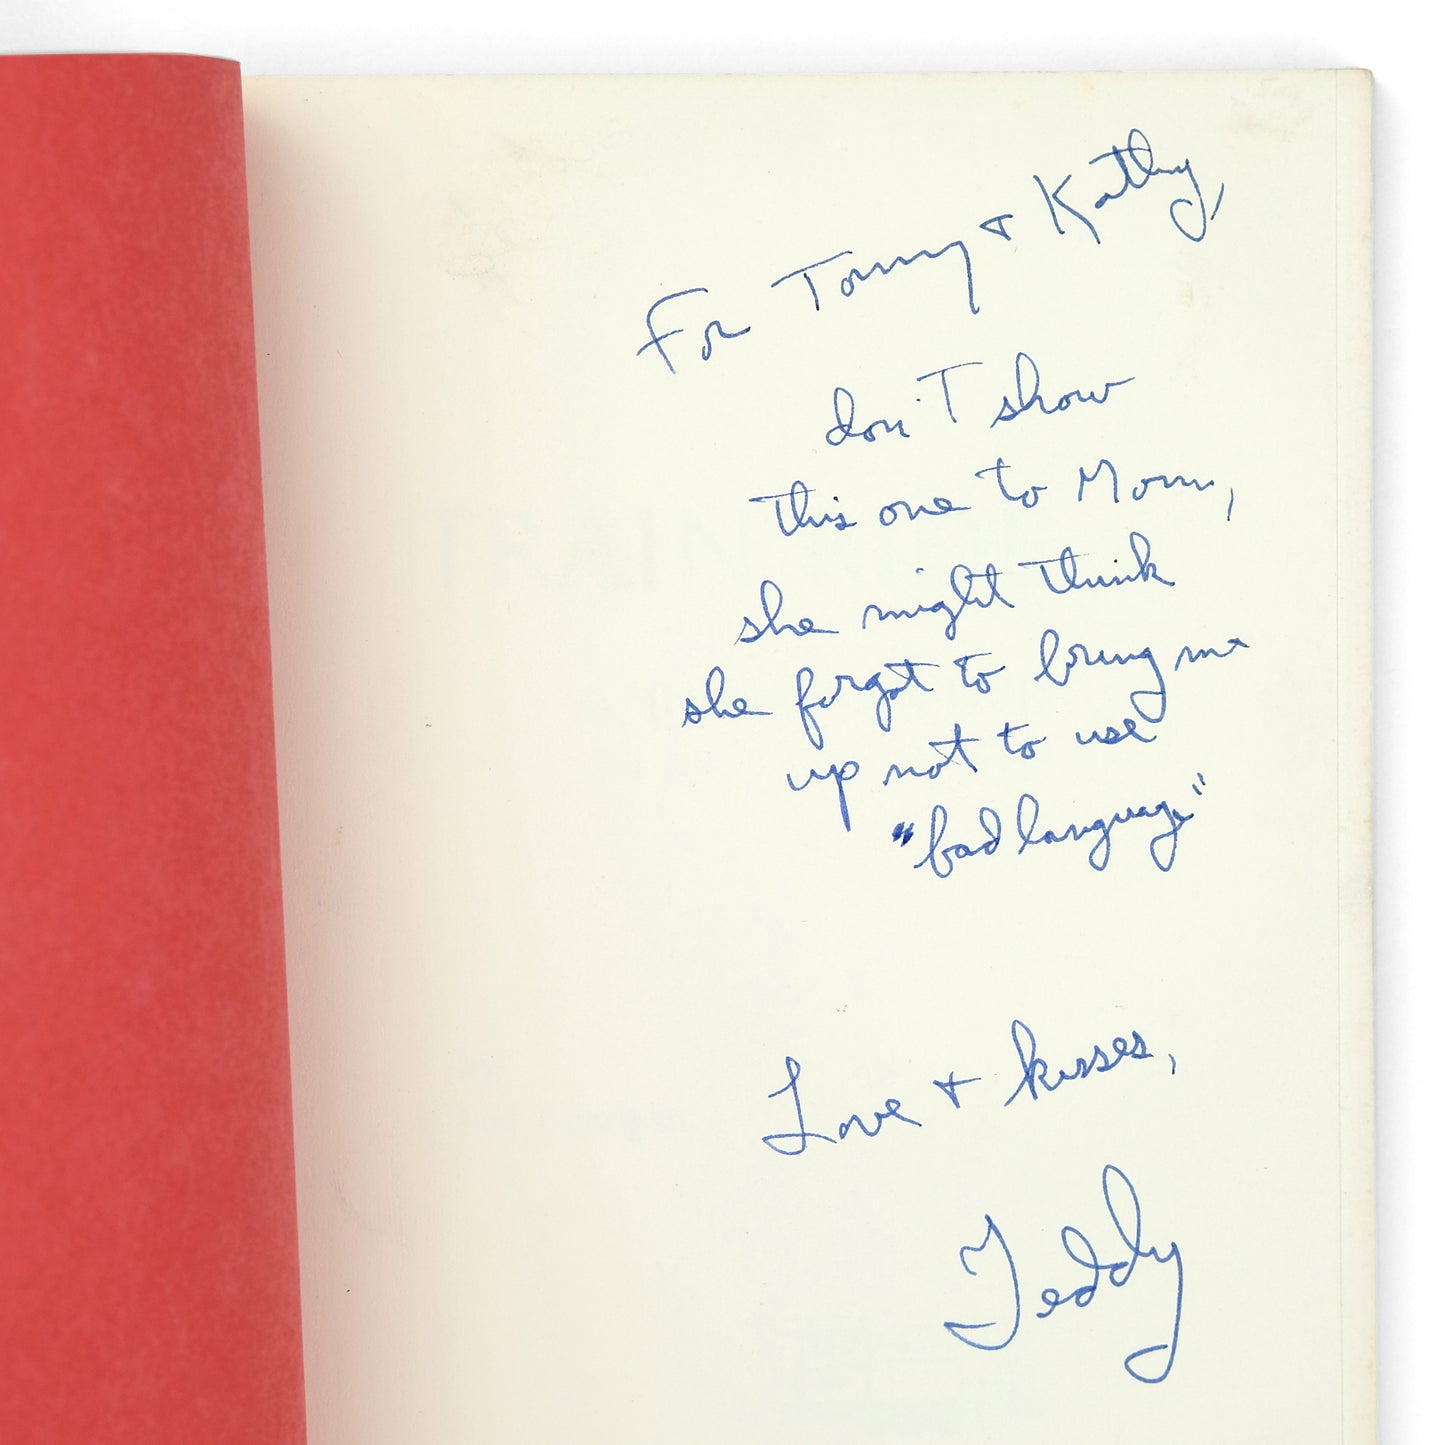 For Tommy & Kathy,
don't show
this one to Mom,
she might think
she forgot to bring me
up not to use
"bad language"
Love + kisses,
Teddy